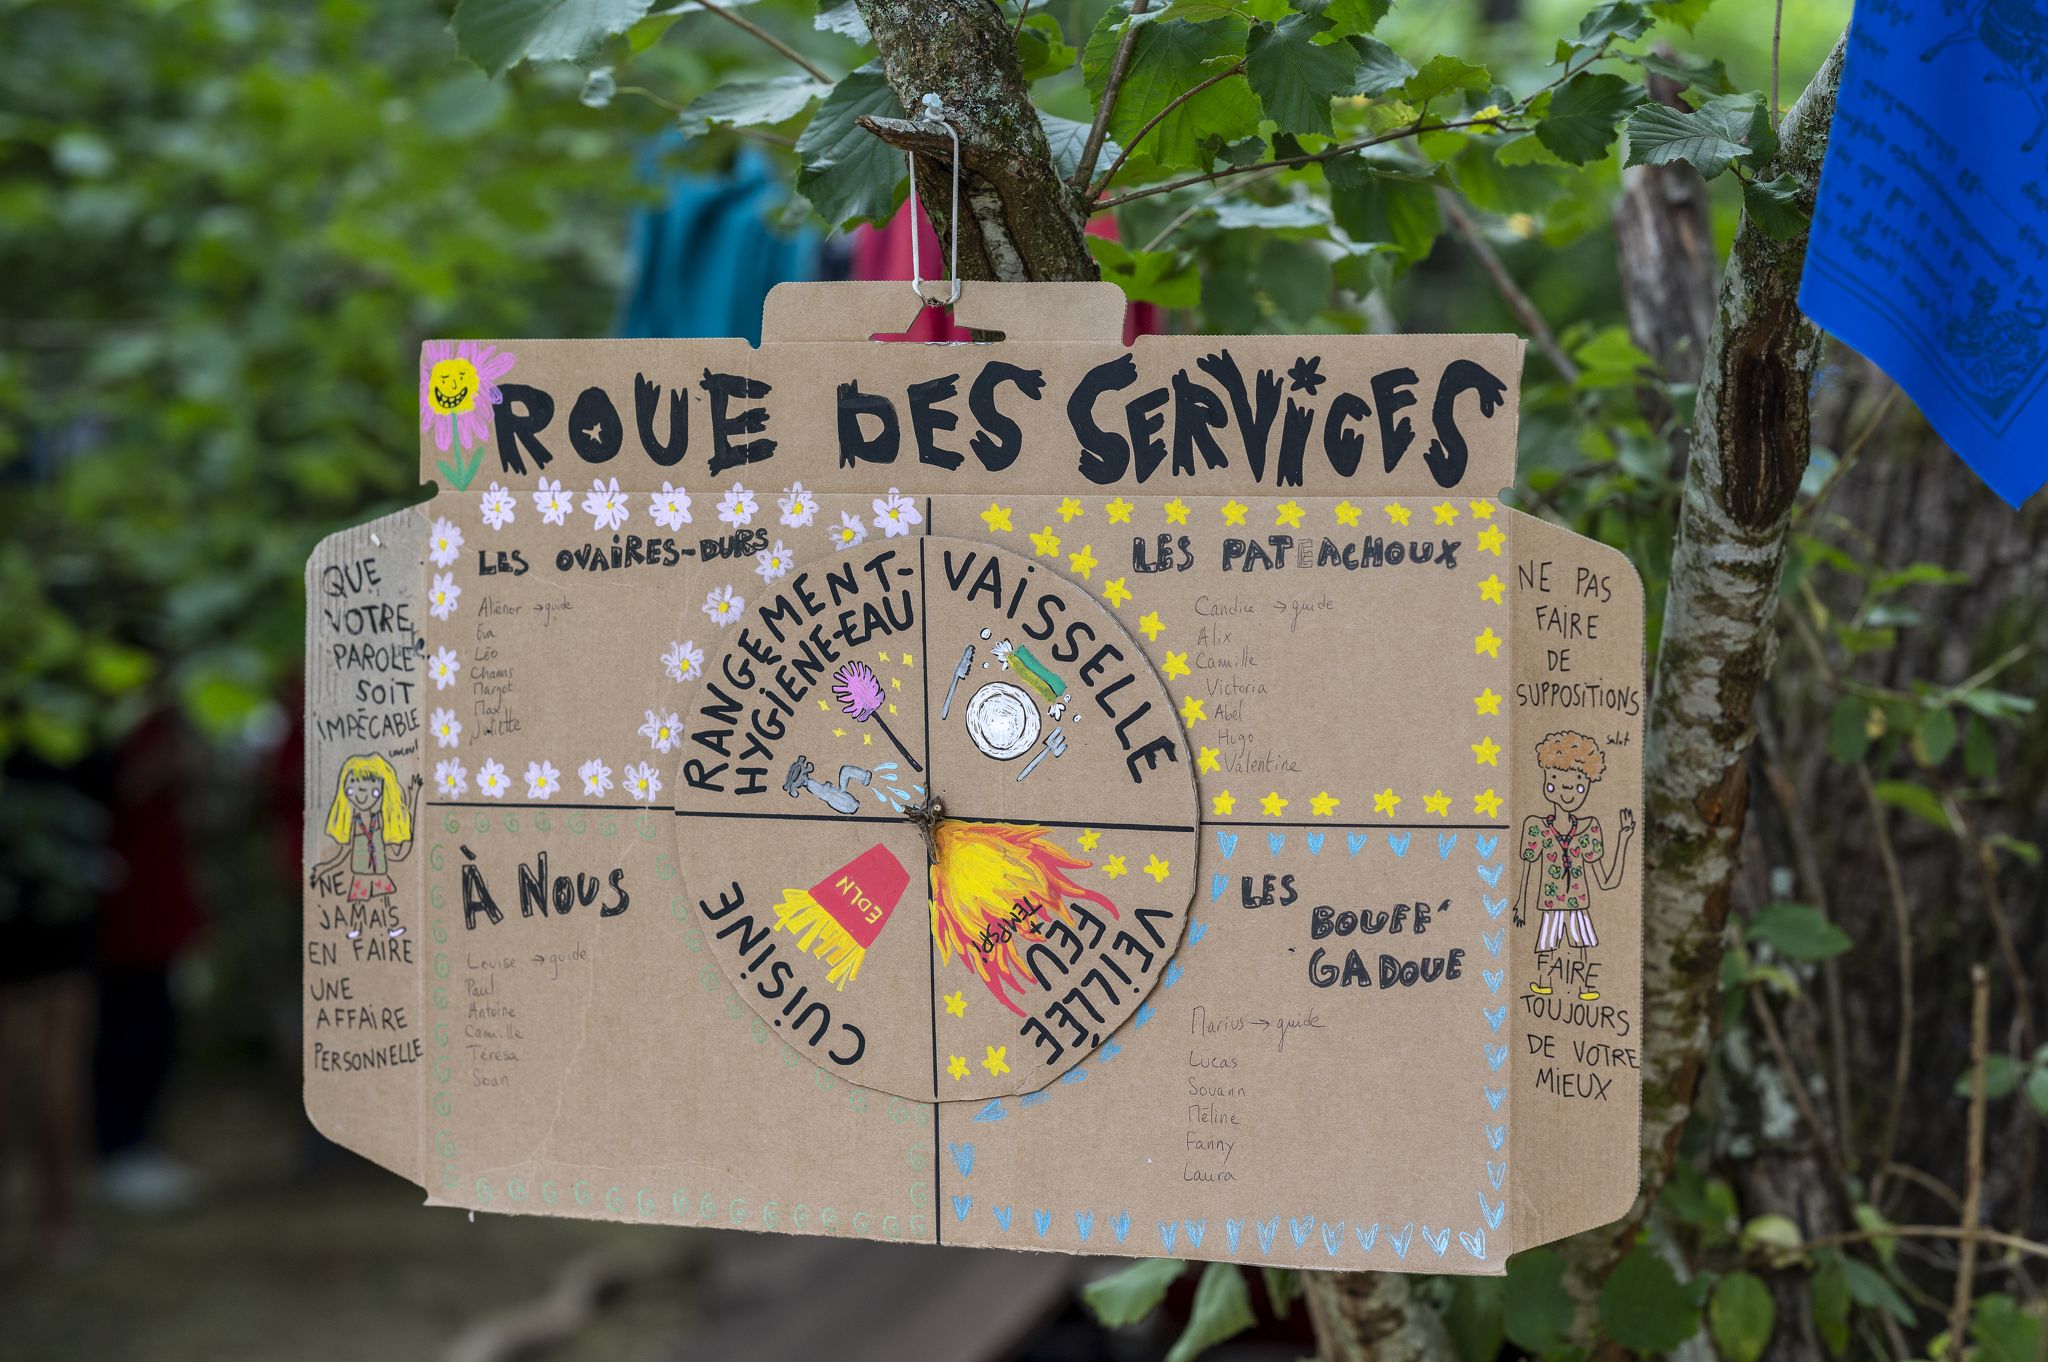 ROUE DES SERVICES
LES OVAIRES-DURS
Aliénor → guide
Eva
Léo
Chams
Margot
Max
Juliette
LES PATEACHOUX
Candice → guide
Alix
Camille
Victoria
Abel
Hugo
Valentine
RANGEMENT-
HYGIÈNE-EAU
VAISSELLE
CUISINE
EDLN
VEILLÉE
FEU
+
TEMPSPI
À NOUS
Louise → guide
Paul
Antoine
Camille
Térésa
Soan
LES
BOUFF'
GADOUE
Marius → guide
Lucas
Souann
Méline
Fanny
Laura
QUE
VOTRE
PAROLE
SOIT
IMPÉCABLE
coucou!
NE
JAMAIS
EN FAIRE
UNE
AFFAIRE
PERSONNELLE
NE PAS
FAIRE
DE
SUPPOSITIONS
salut
FAIRE
TOUJOURS
DE VOTRE
MIEUX